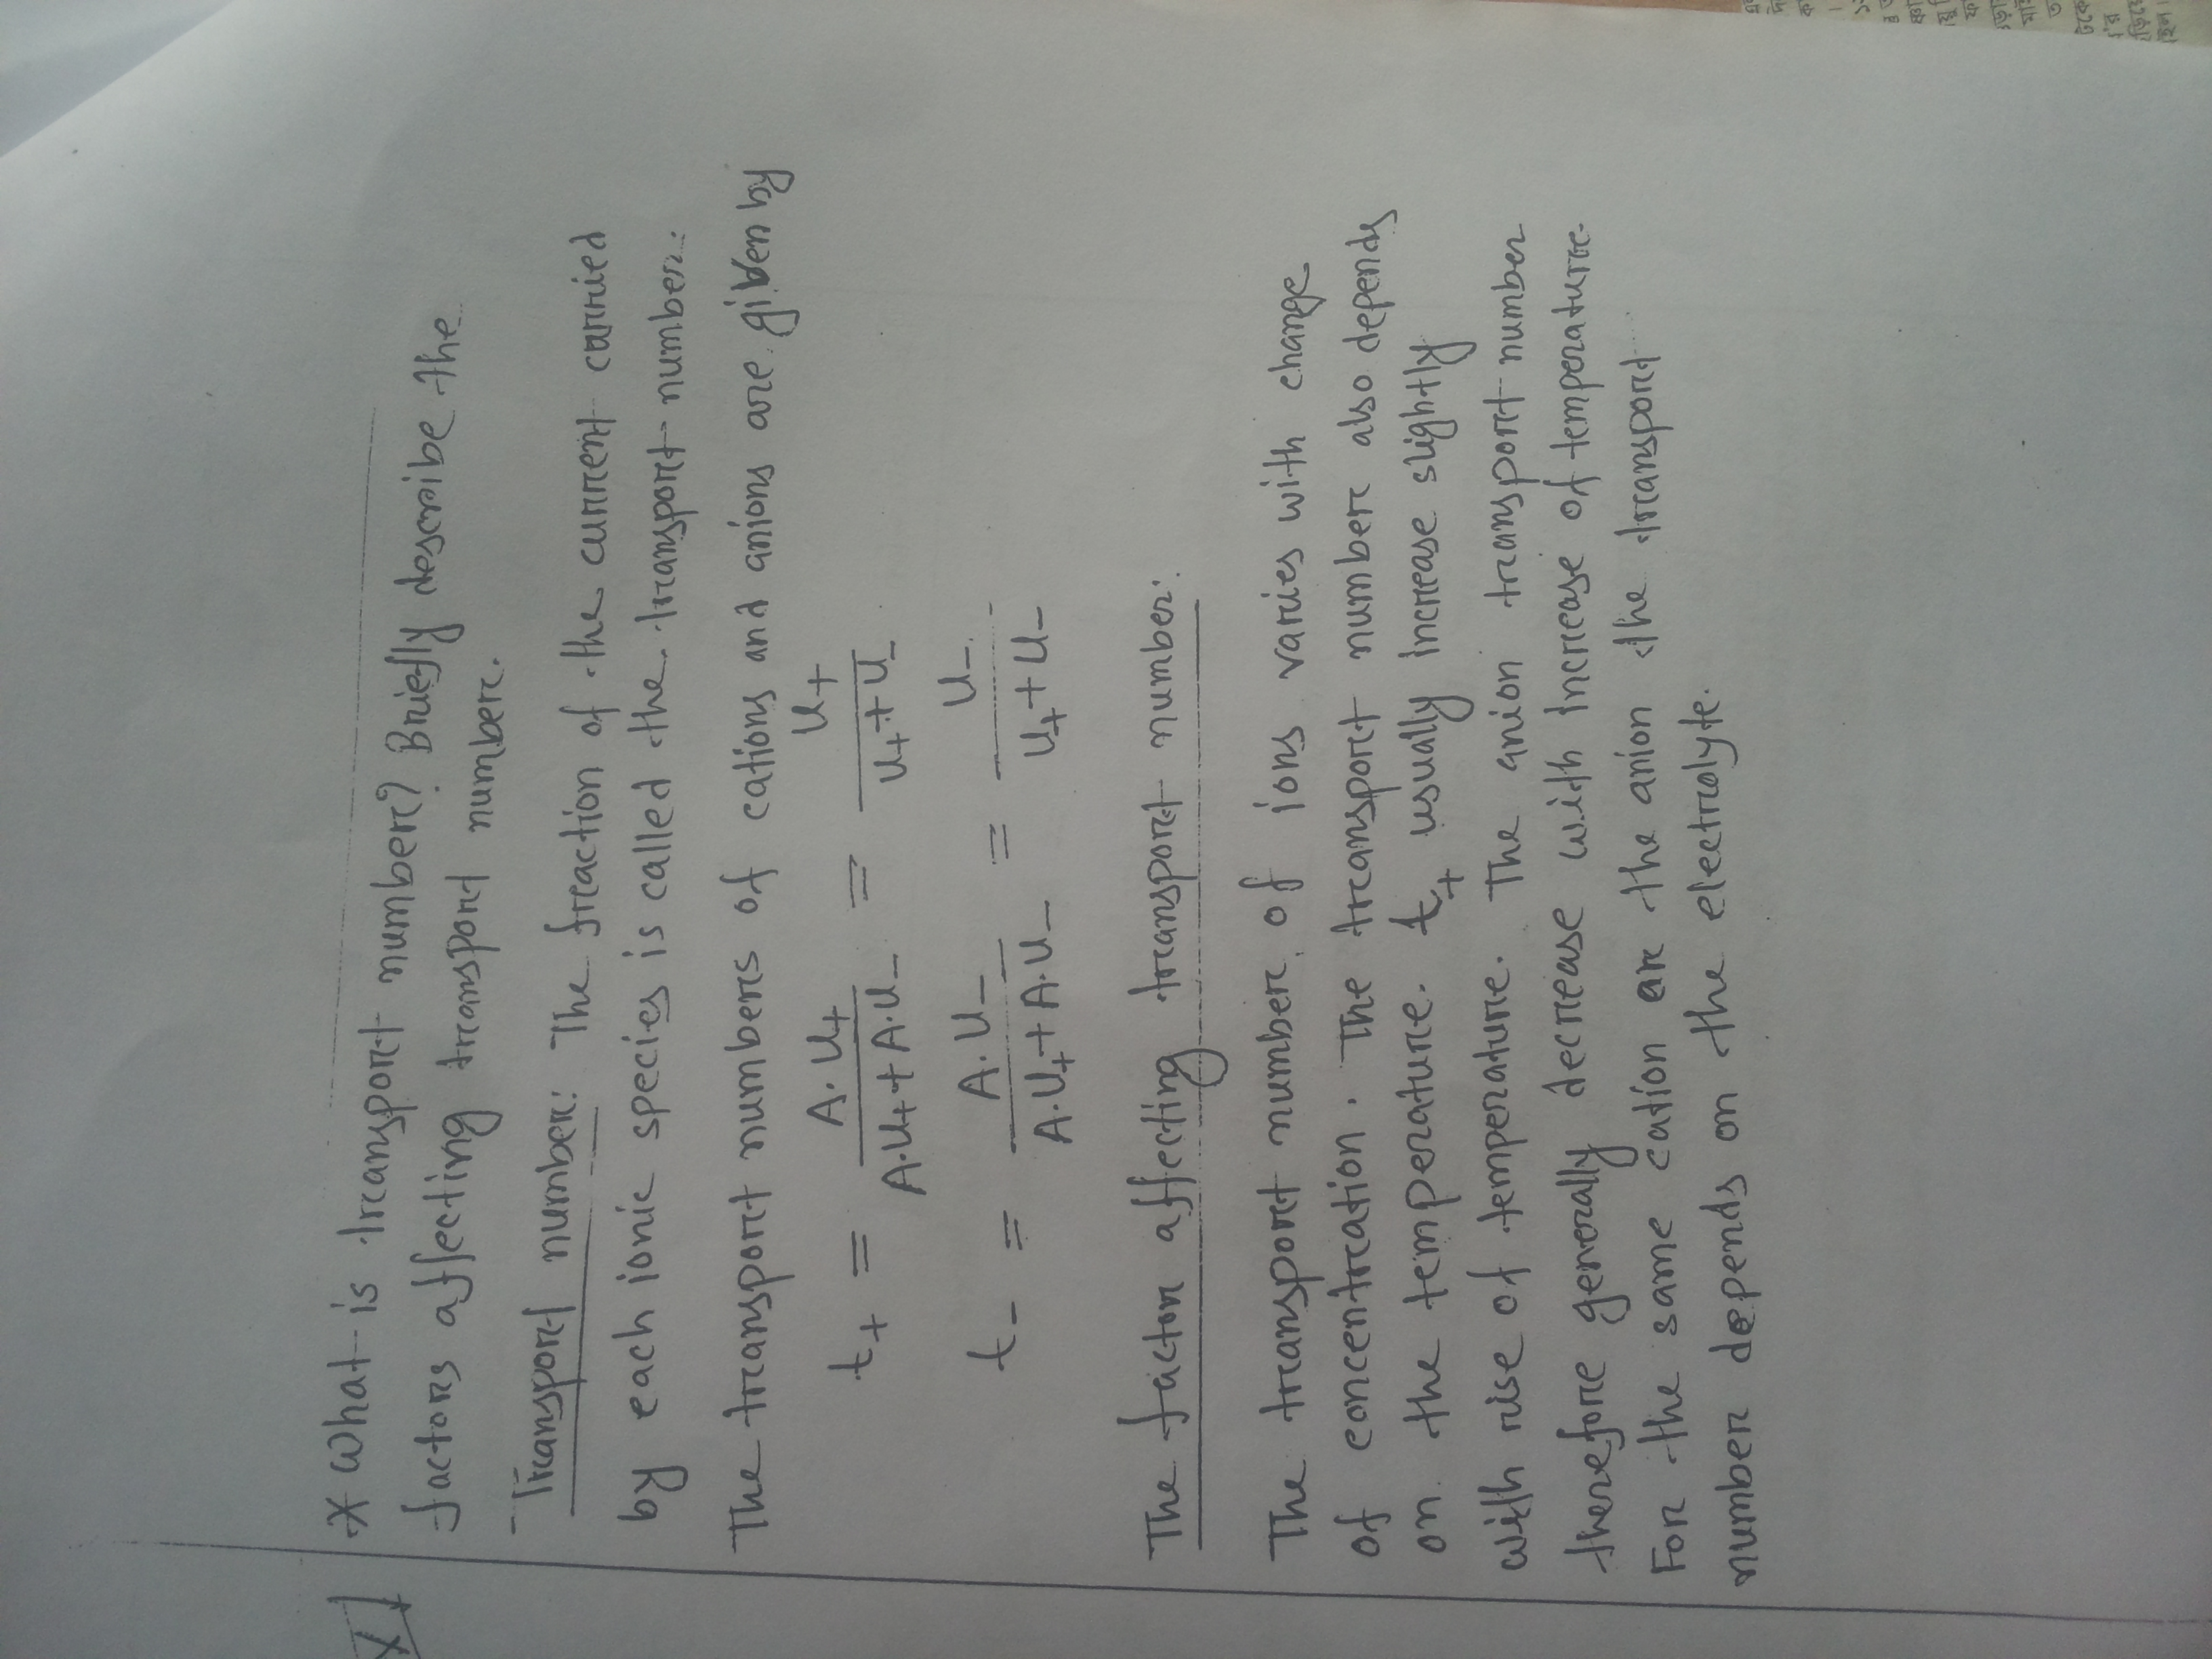 XI
* What is transport number? Briefly describe the
factors affecting transport number.
Transport number: The fraction of the current carried
by each ionic species is called the transport number.
The transport numbers of cations and anions are given by
t+ = A.U+ / A.U+ + A.U- = U+ / U+ + U-
t- = A.U- / A.U+ + A.U- = U- / U+ + U-
The factor affecting transport number:
The transport number of ions varies with change
of concentration. The transport number also depends
on the temperature. t+ usually increase slightly
with rise of temperature. The anion transport number
therefore generally decrease with increase of temperature.
For the same cation are the anion the transport
number depends on the electrolyte.